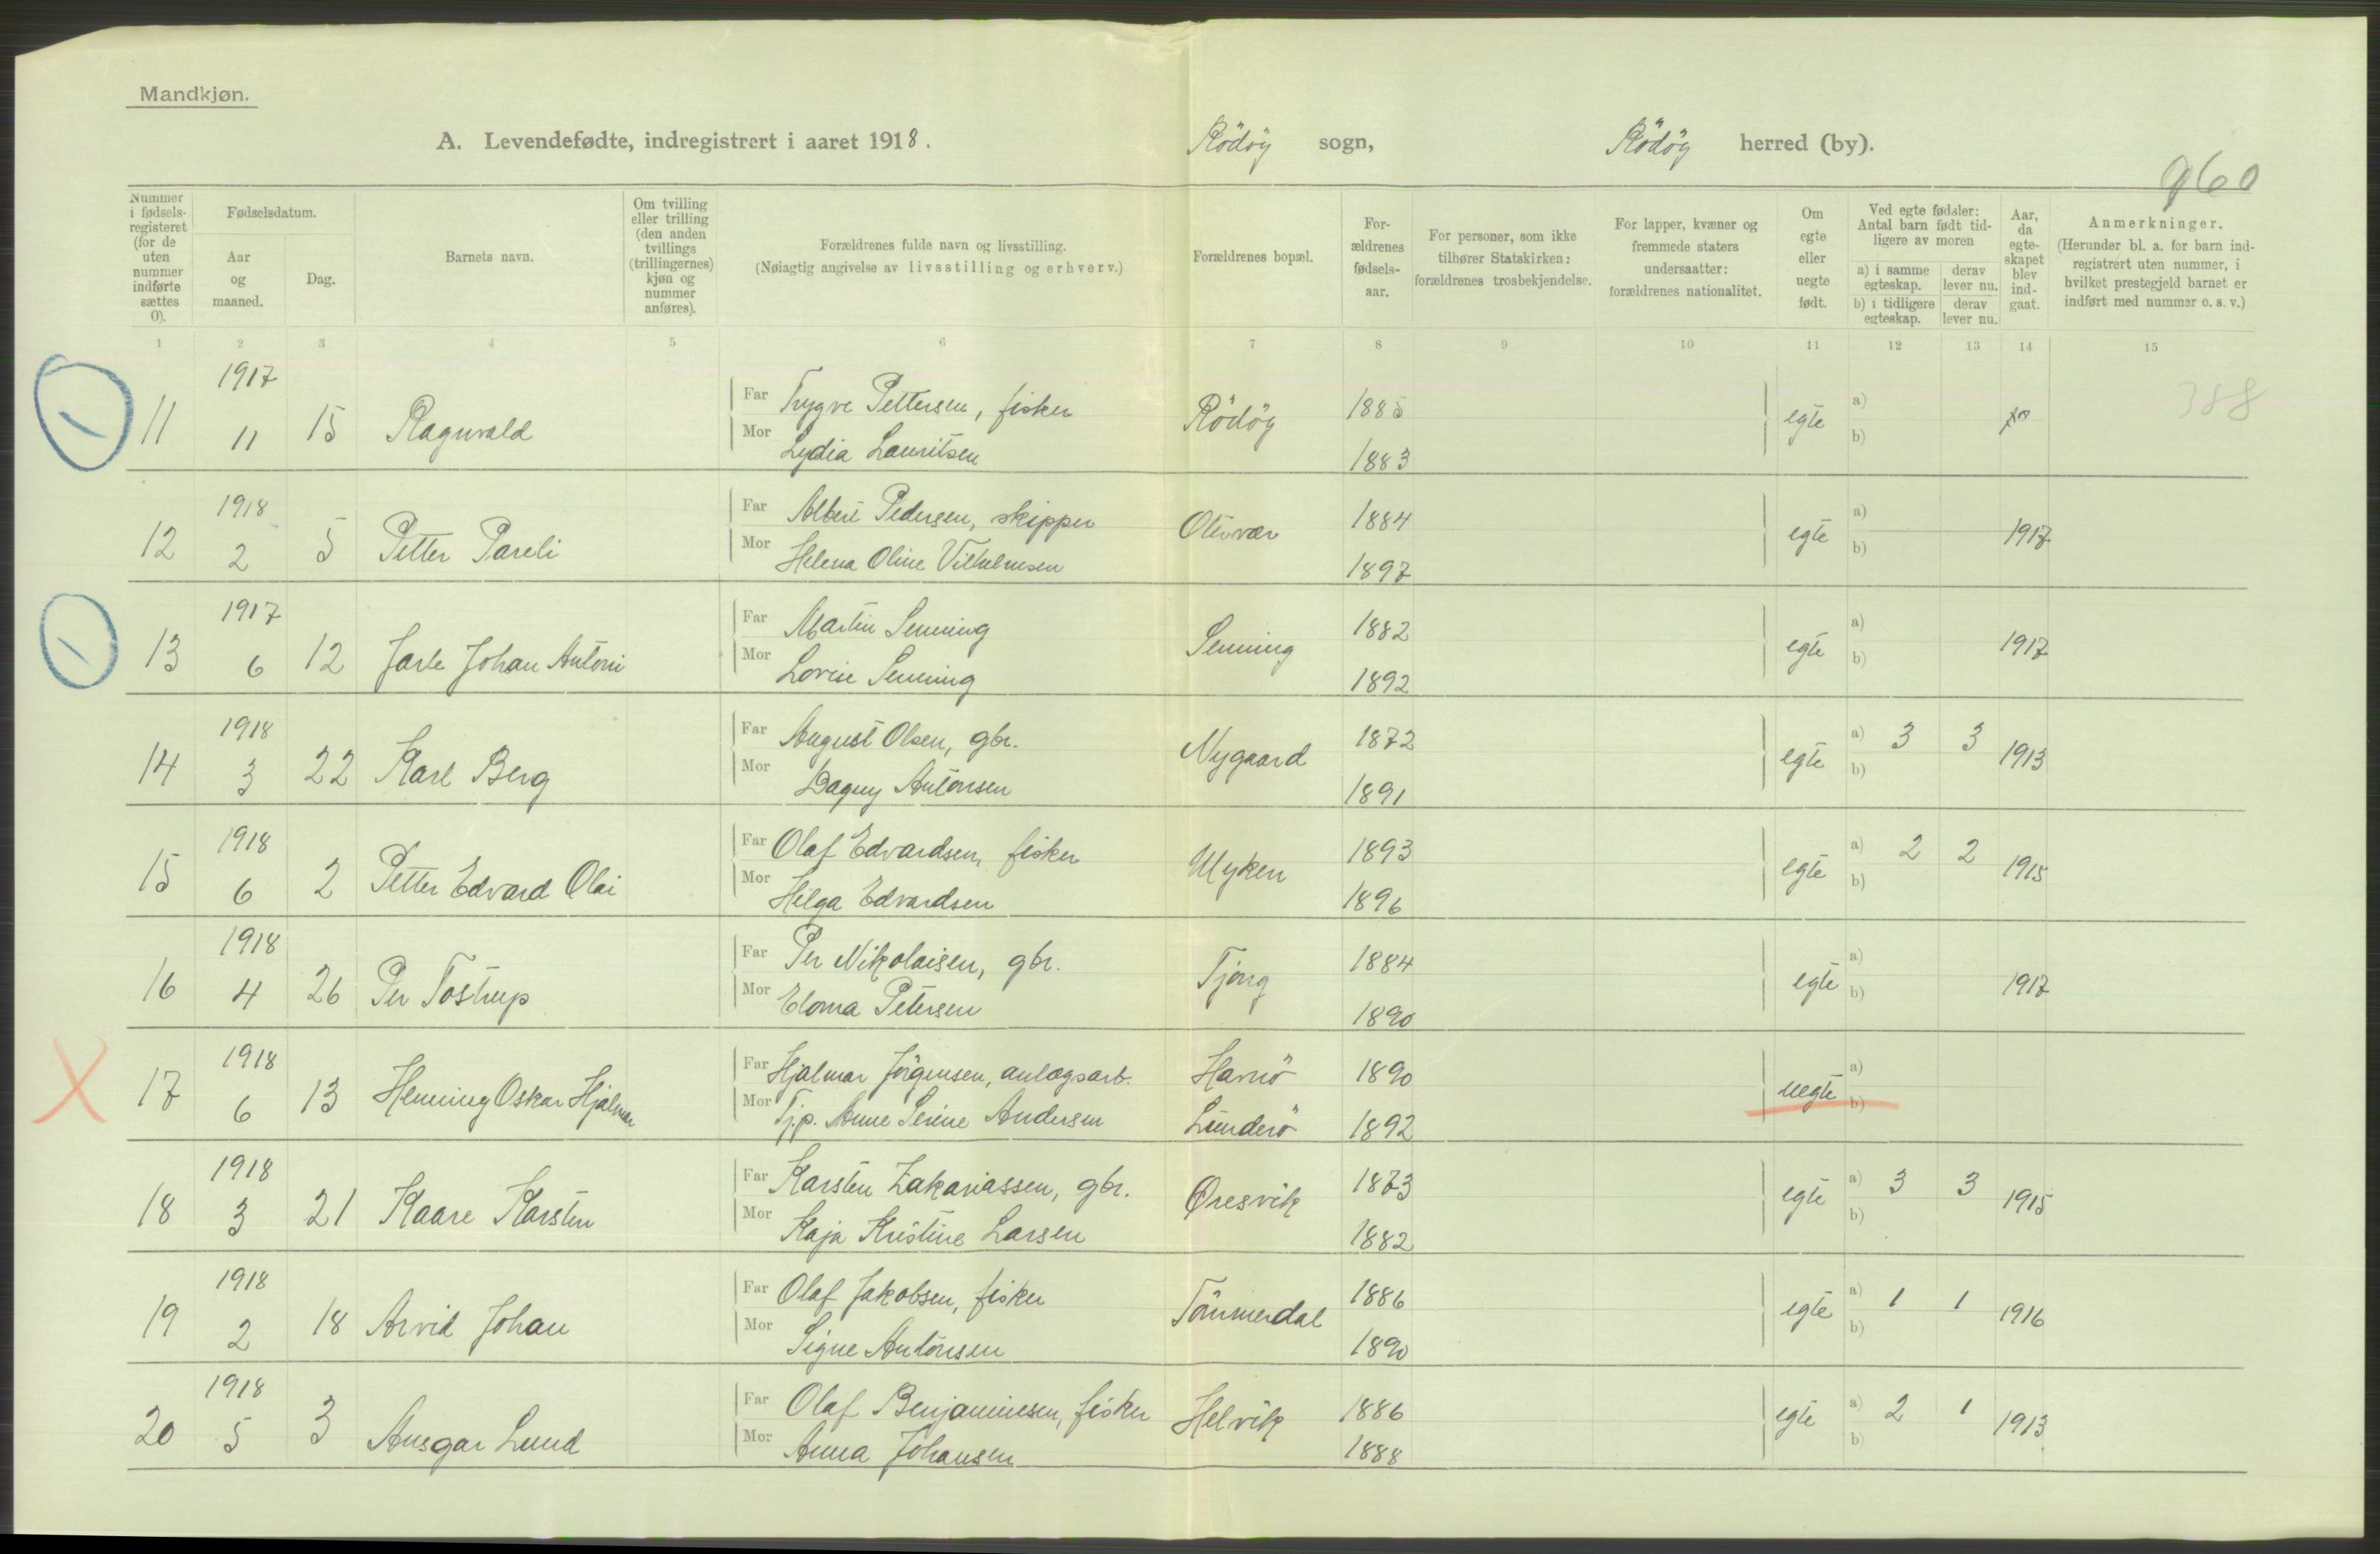 Mandkjøn.
A. Levendefødte, indregistrert i aaret 1918. Rödöy sogn, Rödöy herred (by).
960
Nummer i fødsels-registeret (for de uten nummer indførte sættes 0).
Fødselsdatum.
Aar og maaned.
Dag.
Barnets navn.
Om tvilling eller trilling (den anden tvillings (trillingernes) kjøn og nummer anføres).
Forældrenes fulde navn og livsstilling.
(Nøiagtig angivelse av livsstilling og erhverv.)
Forældrenes bopæl.
For-ældrenes fødsels-aar.
For personer, som ikke tilhører Statskirken: forældrenes trosbekjendelse.
For lapper, kvæner og fremmede staters undersaatter: forældrenes nationalitet.
Om egte eller uegte født.
Ved egte fødsler: Antal barn født tid-ligere av moren
a) i samme egteskap. derav lever nu.
b) i tidligere egteskap. derav lever nu.
Aar, da egte-skapet blev ind-gaat.
Anmerkninger.
(Herunder bl. a. for barn ind-registrert uten nummer, i hvilket prestegjeld barnet er indført med nummer o. s. v.)
1 2 3 4 5 6 7 8 9 10 11 12 13 14 15
1917
Far Trygve Pettersen, fisker 1885 a)
11 11 15 Ragnvald Rödöy egte 388
Mor Lydia Lauritsen 1883 b)
1918
Far Albert Pedersen, skipper 1884 a)
12 2 5 Petter Pareli Otervær egte 1917
Mor Helena Oline Vilhelmsen 1897 b)
1917
Far Martin Senning 1882 a)
13 6 12 Jarle Johan Antoni Senning egte 1917
Mor Lovise Senning 1892 b)
1918
Far August Olsen, gbr. 1872 a) 3 3
14 3 22 Karl Berg Nygaard egte 1913
Mor Dagny Antonsen 1891 b)
1918
Far Olaf Edvardsen, fisker 1893 a) 2 2
15 6 2 Petter Edvard Olai Myken egte 1915
Mor Helga Edvardsen 1896 b)
1918
Far Per Nikolaisen, gbr. 1884 a)
16 4 26 Per Tostrup Tjong egte 1917
Mor Elona Petersen 1890 b)
1918
Far Hjalmar Jörgensen, anlægsarb. Havnö 1890 a)
17 6 13 Henning Oskar Hjalmar uegte
Mor Tj.p. Anne Serine Andersen Lunderö 1892 b)
1918
Far Karsten Zakariassen, gbr. 1873 a) 3 3
18 3 21 Kaare Karsten Øresvik egte 1915
Mor Kaja Kristine Larsen 1882 b)
1918
Far Olaf Jakobsen, fisker 1886 a) 1 1
19 2 18 Arvid Johan Tömmerdal egte 1916
Mor Signe Antonsen 1890 b)
1918
Far Olaf Benjaminsen, fisker 1886 a) 2 1
20 5 3 Ansgar Lund Helvik egte 1913
Mor Anna Johansen 1888 b)